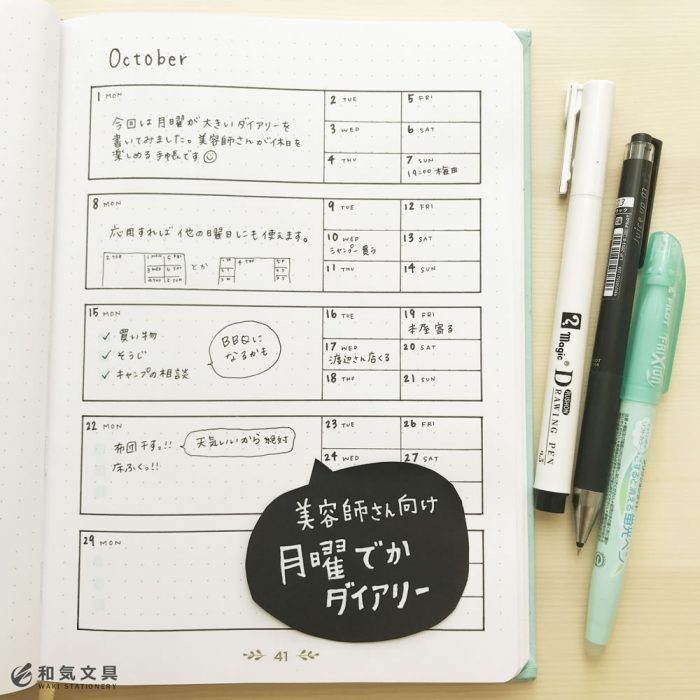 October
1 MON
今回は月曜が大きいダイアリーを
書いてみました。美容師さんが休日を
楽しめる手帳です
2 TUE
5 FRI
3 WED
6 SAT
4 THU
7 SUN
19:00 梅田
8 MON
応用すれば他の曜日にも使えます。
2 TUE
1 MON
5 FRI
3 WED
6 SAT
4 THU
7 SUN
とか
4 THU
9 TUE
12 FRI
10 WED
シャンプー買う
13 SAT
11 THU
14 SUN
15 MON
✓ 買い物
✓ そうじ
✓ キャンプの相談
BBQに
なるかも
16 TUE
19 FRI
本屋寄る
17 WED
渡辺さん店くる
20 SAT
18 THU
21 SUN
22 MON
布団干すっ!!
天気いいから絶対
床ふくっ!!
23 TUE
26 FRI
24 WED
27 SAT
29 MON
美容師さん向け
月曜でか
ダイアリー
41
和気文具
WAKI STATIONERY
Magic
CUSHION
DRAWING PEN
0.5
Juice up 03
PILOT
FRIXION
蛍光ペン